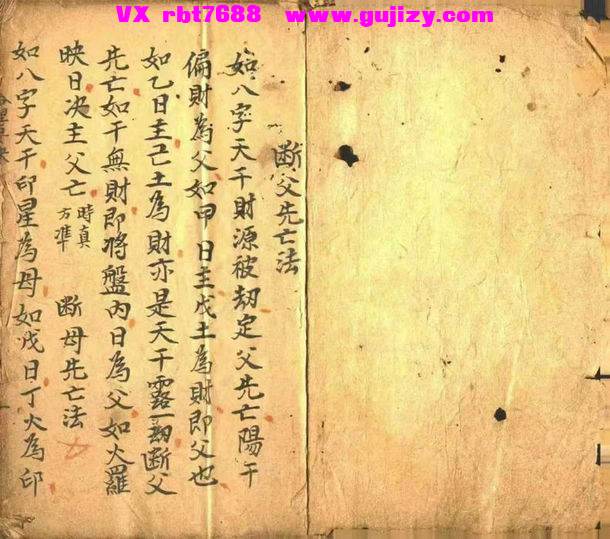 VX rbt7688 www.gujizy.com
断父先亡法
如八字天干財源被劫定父先亡陽干
偏財為父如甲日主戊土為財即父也
如乙日主己土為財亦是天干露一劫断父
先亡如干無財即将盤内日為父如火羅
映日决主父亡時真方準 断母先亡法
如八字天干印星為母如戊日丁火為印